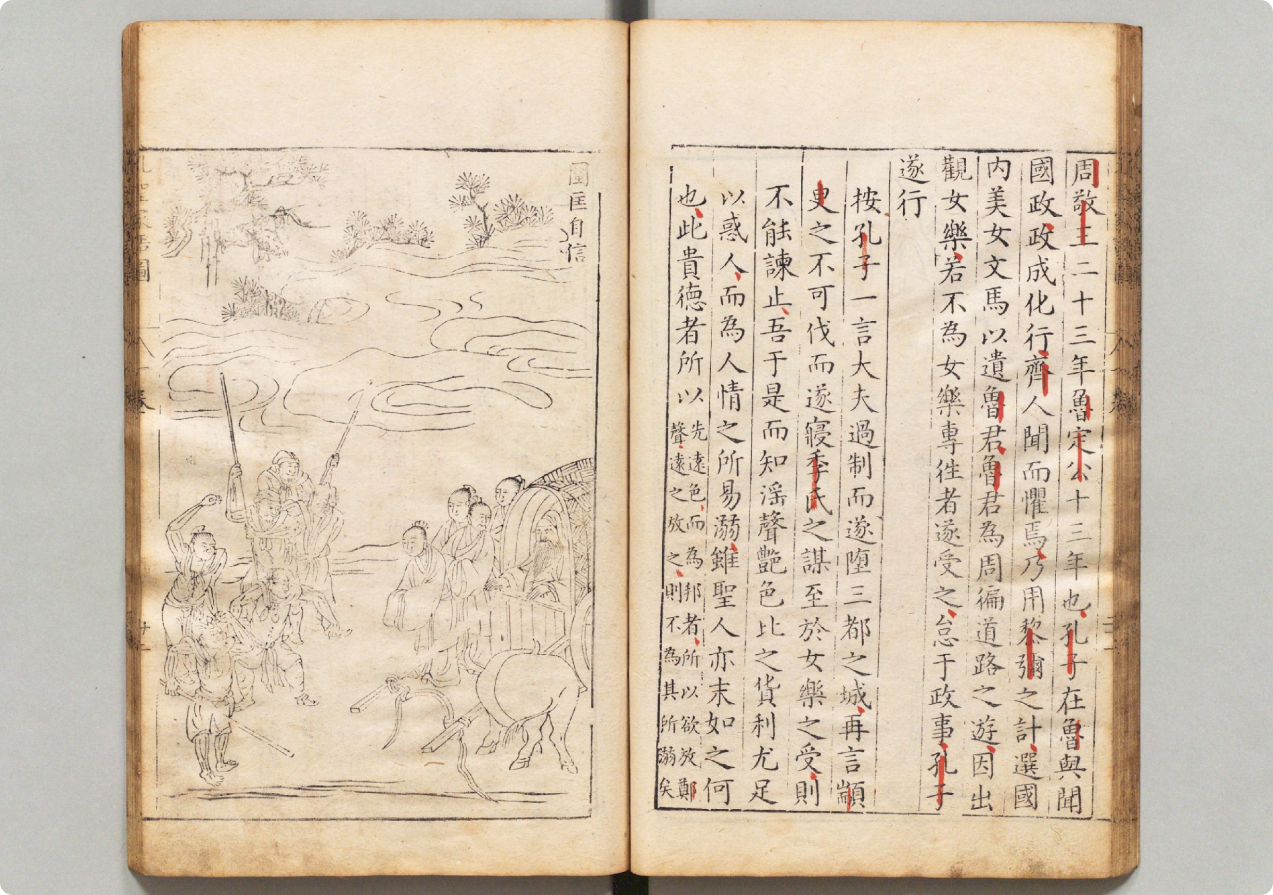 周敬王二十三年魯定公十三年也孔子在魯與聞
國政政成化行齊人聞而懼焉乃用黎彌之計選國
內美女文馬以遺魯君魯君為周徧道路之遊因出
觀女樂若不為女樂專徃者遂受之怠于政事孔子
遂行
按孔子一言大夫過制而遂墮三都之城再言顓
臾之不可伐而遂寢季氏之謀至於女樂之受則
不能諫止吾于是而知淫聲艷色比之貨利尤足
以惑人而為人情之所易溺雖聖人亦末如之何
也此貴德者所以
先遠色而為邦者所以欲放鄭
聲遠之放之則不為其所溺矣
圍匡自信